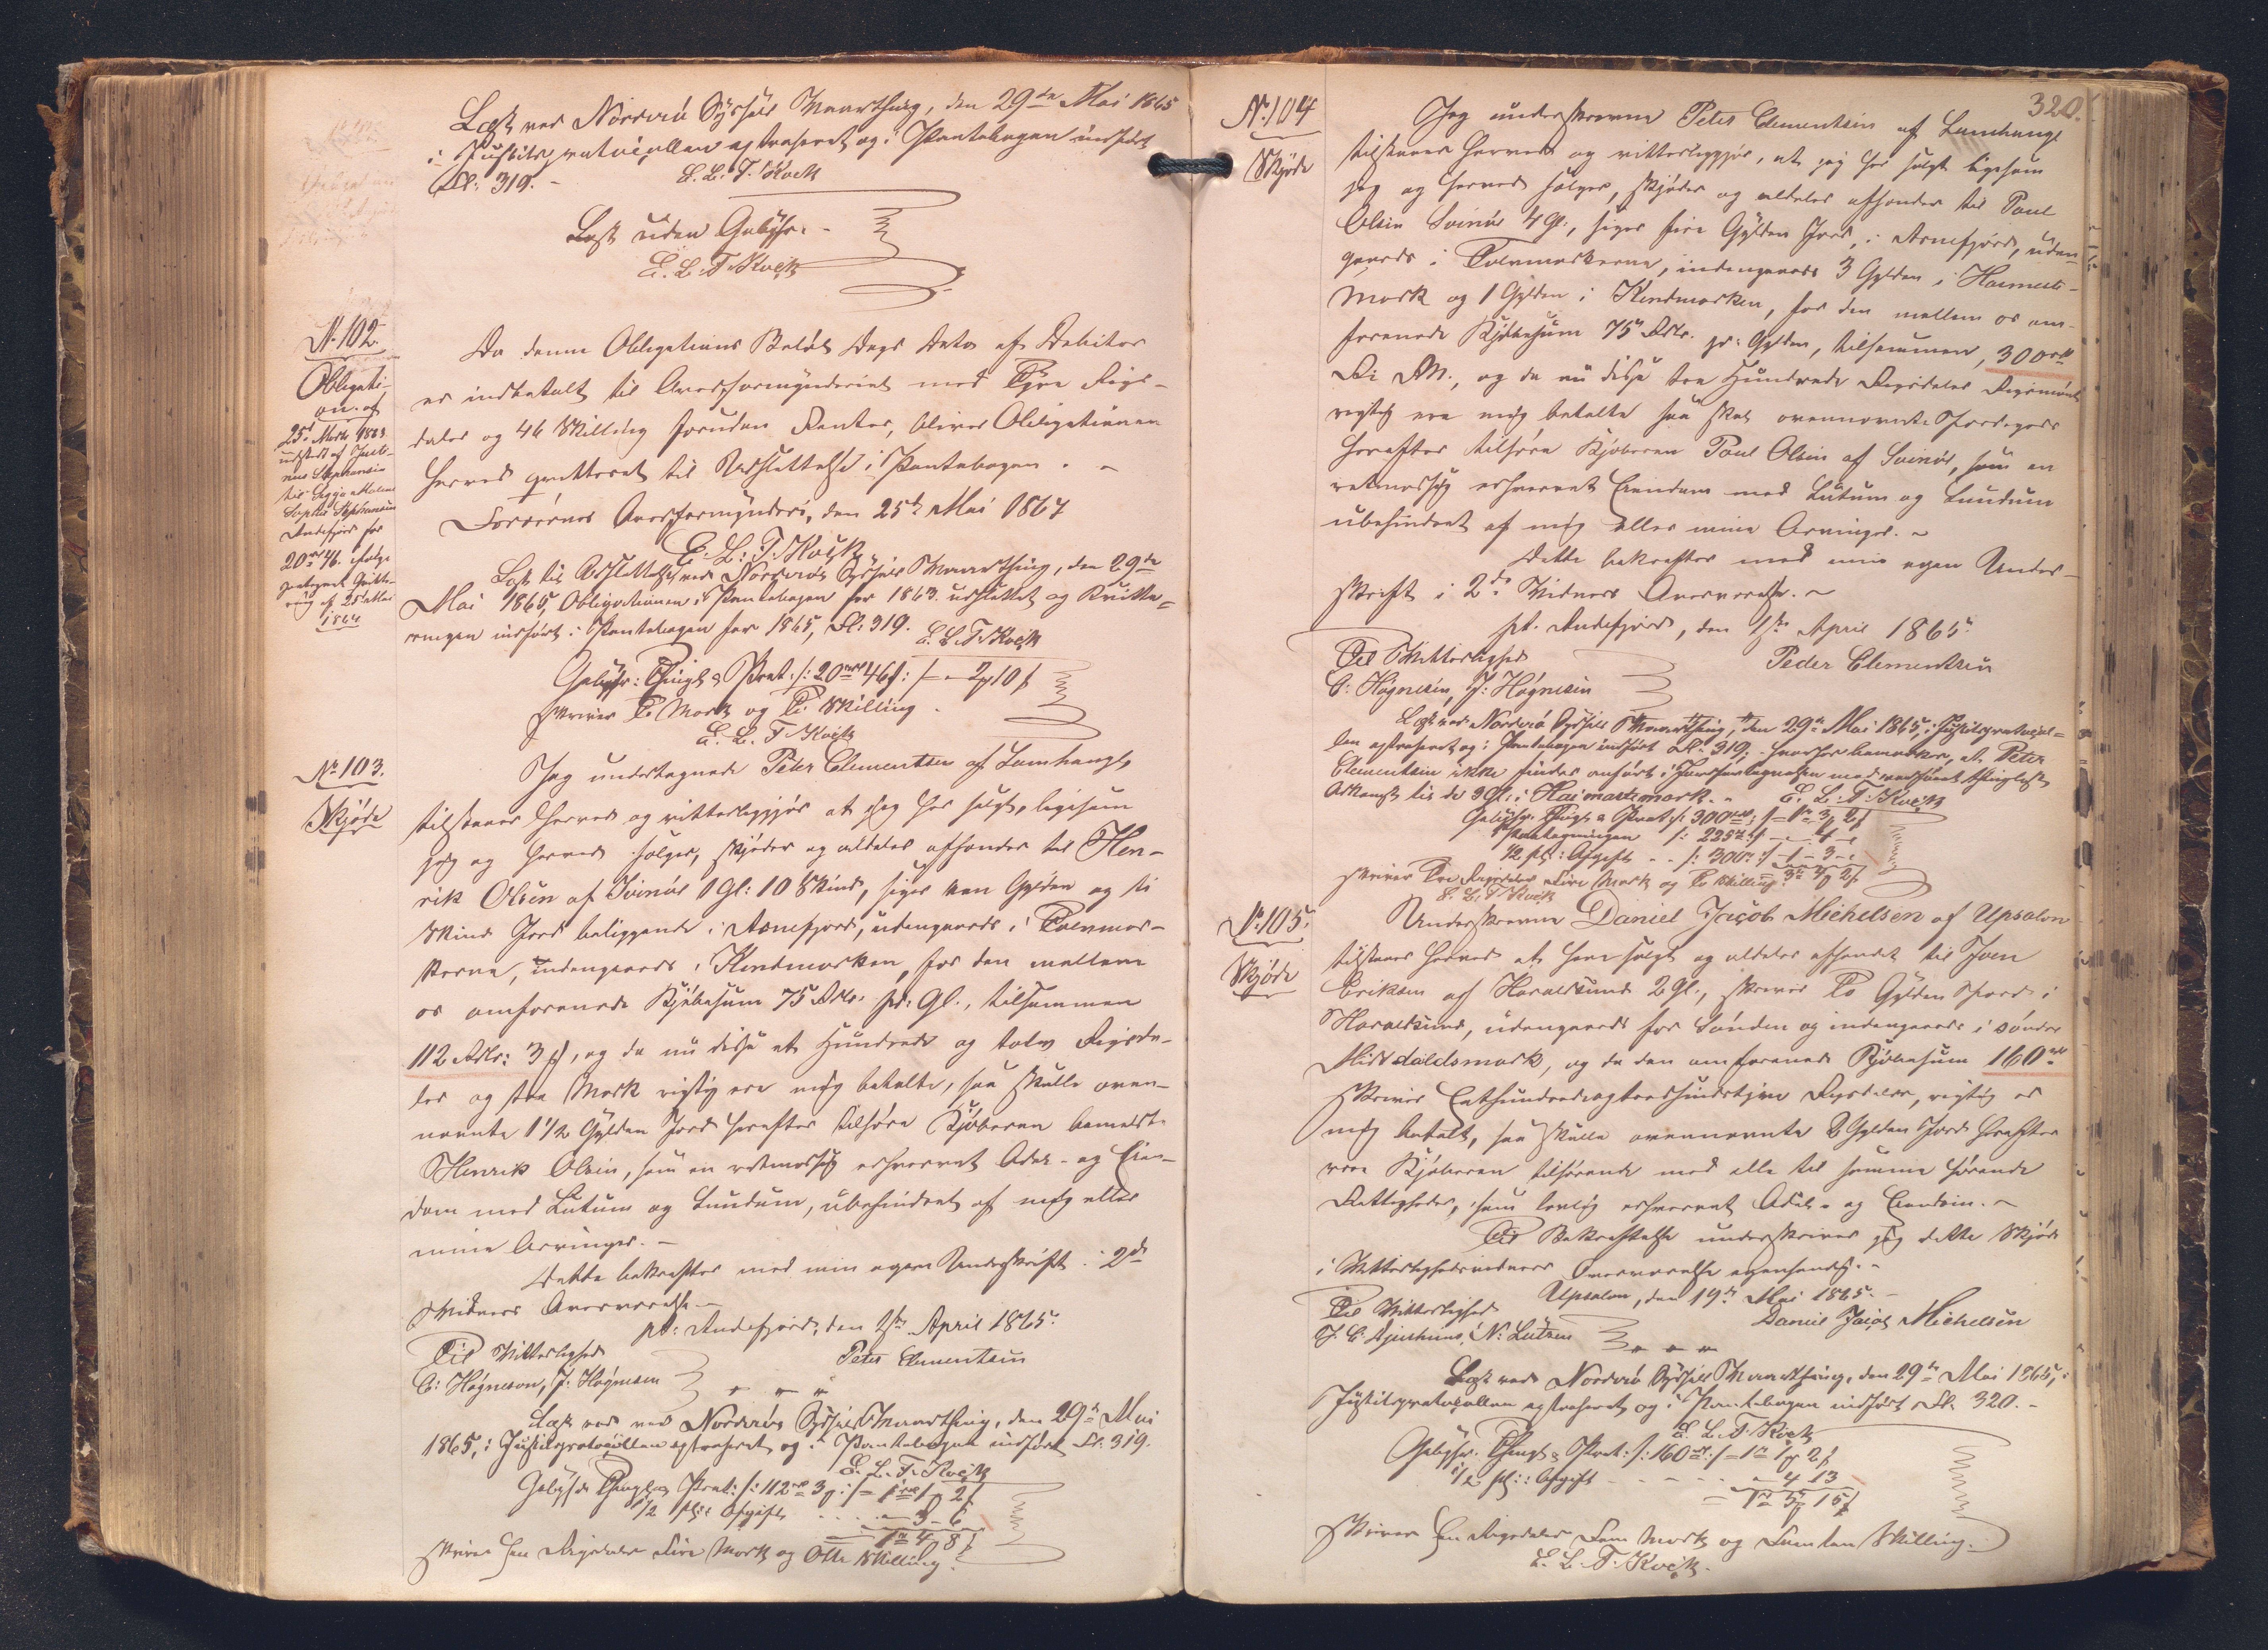 Læst ved Norderø Syssels Vaarthing, den 29de Mai 1865
i Justitsprotocollen extraheret og i Pantebogen indført
Fol: 319. - E. L. T. Kock
Læst uden Gebyhr. -
E. L. T. Kock
No 102.
Obligati-
on af
25de Marts 1863
udstedt af
til
Andefjord for
20 rd 46. ifølge
paategnet Qvitte-
ring af 25de Mai
1864
Da denne Obligations Beløb Dags Dato af Debitor
er indbetalt til Overformynderiet med Tyve Rigs-
daler og 46 Skilling foruden Renter, bliver Obligationen
herved qvitteret til Udslettelse i Pantebogen. -
Færøernes Overformynderi, den 25de Mai 1864
E. L. T. Kock
Læst til Udslettelse ved Norderø Syssels Vaarthing, den 29de
Mai 1865, Obligationen i Pantebogen for 1863 udslettet og Kvitte-
ringen indført i Pantebogen for 1865, Fol: 319. E. L. T. Kock
Gebyhr: Thingl. & Prot. /: 20 rd 46 ß :/ - 2 ₰ 10 ß
skriver To Mark og Ti Skilling.
E. L. T. Kock
No 103.
Skjøde
Jeg undertegnede Peter Clementsen af Lamhauge
tilstaaer herved og vitterliggjør at jeg har solgt, ligesom
jeg og herved sælger, skjøder og aldeles afhænder til Hen-
rik Olsen af Svinør 1 Gl: 10 Skind, siger een Gylden og ti
Skind Jord beliggende i Arnefjord, udengaards i Tvermar-
kerne, indengaards i Kendmarken, for den mellem
os omforenede Kjøbesum 75 Rdlr. pr: Gl., tilsammen
112 Rdlr: 3 ₰, og da nu disse et Hundrede og tolv Rigsda-
ler og tre Mark rigtig ere mig betalte, saa skulle oven-
nævnte 1½ Gylden Jord herefter tilhøre Kjøberen bemeldte
Henrik Olsen, som en retmæssig erhvervet Odel- og Eien-
dom med Lutum og Lundum, ubehindret af mig eller
mine Arvinger. -
Dette bekræfter med min egen Underskrift i 2de
Vidners Overværelse. -
pt: Andefjord, den 1ste April 1865.
Til Vitterlighed
Peter Clementsen
C: Høgnesen, J: Høgnesen
Læst ved Norderø Syssels Vaarthing, den 29de Mai
1865, i Justitsprotocollen extraheret og i Pantebogen indført Fol. 319.
E. L. T. Kock
Gebyhr Thingl. & Prot: /: 112 rd 3 ₰ :/ = 1 rd 1 ₰ 2 ß
½ pCt: Afgift . . . . - 3 - 6
1 rd 4 - 8 ß
skriver Een Rigsdaler Fire Mark og Otte Skilling.
320.
No 104
Skjøde
Jeg underskrevne Peter Clementsen af Lamhauge
tilstaaer herved og vitterliggjør, at jeg har solgt ligesom
jeg og herved sælger, skjøder og aldeles afhænder til Poul
Olsen Svinør 4 Gl:, siger fire Gylden Jord, i Arnefjord, uden-
gaards i Tvermarkerne, indengaards 3 Gylden i Heimeste-
mark og 1 Gylden i Kendmarken, for den mellem os om-
forenede Kjøbesum 75 Rdlr. pr: Gylden, tilsammen, 300 rd
Ri Mt., og da nu disse tre Hundrede Rigsdaler Rigsmønt
rigtig ere mig betalte saa skal ovennævnte Jordegods
herefter tilhøre Kjøberen Poul Olsen af Svinør, som en
retmæssig erhvervet Eiendom med Lutum og Lundum
ubehindret af mig eller mine Arvinger. -
Dette bekræfter med min egen Under-
skrift i 2de Vidners Overværelse. -
pt. Andefjord, den 1ste April 1865.
Til Vitterlighed
Peder Clementsen
C: Høgnesen, J: Høgnesen
Læst ved Norderø Syssels Vaarthing, den 29de Mai 1865, i Justitsprotocol-
len extraheret og i Pantebogen indført Fol. 319; hvorhos bemærkes, at Peter
Clementsen ikke findes anført i Jordfortegnelsen med vedhørende thinglæst
Adkomst til de 3 Gl: i Heimastemark. - E. L. T. Kock
Gebyhr. Thingl. & Prot. /: 300 rd :/ = 1 rd 3 ₰ 2 ß
Paategningen /: 225 rd :/ - 4 -
½ pCt: Afgift - - /: 300 rd :/ 1 - 3 -
3 rd 4 ₰ 2 ß
skriver Tre Rigsdaler Fire Mark og To Skilling.
E. L. T. Kock
No 105.
Skjøde
Underskrevne Daniel Jacob Michelsen af Upsalon
tilstaaer herved at have solgt og aldeles afhændet til Joen
Eriksen af Haraldsund 2 Gl., skriver To Gylden Jord i
Haraldsund, udengaards for Sønden og indengaards i søndre
Midtdaldsmark, og da den omforenede Kjøbesum 160 rd
skriver Eethundredeogtredsindstyve Rigsdaler, rigtig er
mig betalt, saa skulle ovennævnte 2 Gylden Jord herefter
være Kjøberen tilhørende med alle til samme hørende
Rettigheder, som lovlig erhvervet Odel- og Eiendom. -
Til Bekræftelse underskriver jeg dette Skjøde
i Vitterlighedsvidners Overværelse egenhændig. -
Upsalon, den 19de Mai 1865. -
Til Vitterlighed
Daniel Jacob Michelsen
J. C. Djurhuus, N: Lützen
Læst ved Norderø Syssels Vaarthing, den 29de Mai 1865, i
Justitsprotocollen extraheret og i Pantebogen indført Fol. 320. -
E. L. T. Kock
Gebyhr. Thingl. & Prot: /: 160 rd :/ = 1 rd 1 ₰ 2 ß
½ pCt: Afgift - - - - - 4 13
= 1 rd 5 ₰ 15 ß
skriver Een Rigsdaler Fem Mark og Femten Skilling.
E. L. T. Kock.